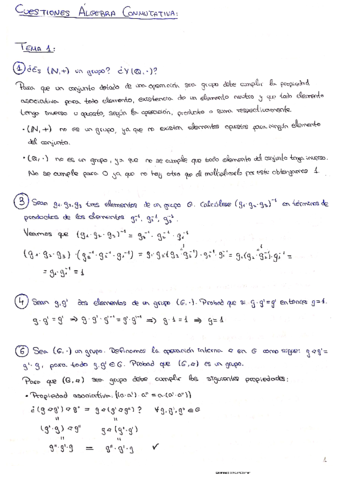 CUESTIONES ÁLGEBRA CONMUTATIVA:
TEMA 1:
① ¿Es (ℕ,+) un grupo? ¿Y (ℚ,·)?
Para que un conjunto dotado de una operación sea grupo debe cumplir la propiedad
asociativa para todo elemento, existencia de un elemento neutro y que todo elemento
tenga inverso u opuesto, según la operación, producto o suma respectivamente.
· (ℕ,+) no es un grupo, ya que no existen elementos opuestos para ningún elemento
del conjunto.
· (ℚ,·) no es un grupo, ya que no se cumple que todo elemento del conjunto tenga inverso.
No se cumple para 0 ya que no hay otro que al multiplicarlo por este obtengamos 1.
③ Sean g₁, g₂, g₃ tres elementos de un grupo G. Calcúlese (g₁ g₂ g₃)⁻¹ en términos de
productos de los elementos g₁⁻¹, g₂⁻¹, g₃⁻¹.
Veamos que (g₁ g₂ g₃)⁻¹ = g₃⁻¹ · g₂⁻¹ · g₁⁻¹
(g₁ · g₂ · g₃) · (g₃⁻¹ · g₂⁻¹ · g₁⁻¹) = g₁ · g₂ (g₃ · g₃⁻¹) · g₂⁻¹ · g₁⁻¹ = g₁ (g₂ · g₂⁻¹) · g₁⁻¹ =
= g₁ · g₁⁻¹ = 1
④ Sean g, g' dos elementos de un grupo (G,·). Probad que si g · g' = g' entonces g = 1.
g · g' = g' ⇒ g · g' · g'⁻¹ = g' · g'⁻¹ ⇒ g · 1 = 1 ⇒ g = 1
Sea (G,·) un grupo. Definamos la operación interna o en G como sigue: g o g' =
g' · g, para todo g, g' ∈ G. Probad que (G, o) es un grupo.
Para que (G, o) sea grupo debe cumplir las siguientes propiedades:
· Propiedad asociativa. ((a · a') · a'' = a · (a' · a''))
¿(g o g') o g'' = g o (g' o g'')? ∀ g, g', g'' ∈ G
(g' · g) o g'' g o (g'' · g')
g'' · g' · g = g'' · g' · g ✓
1